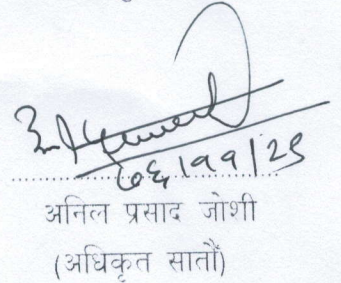 ७६/११/२९
....................
अनिल प्रसाद जोशी
(अधिकृत सातौं)